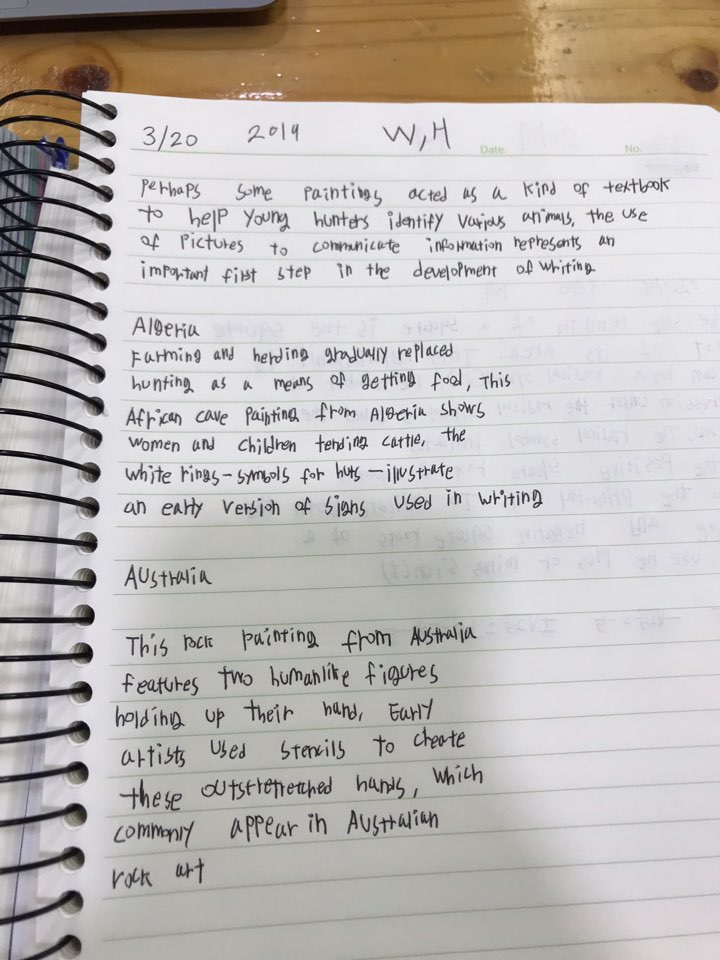 3/20 2019 W,H
Date. No.
Perhaps some paintings acted as a kind of textbook
to help young hunters identify various animals, the use
of Pictures to communicate information represents an
important first step in the development of writing
Algeria
Farming and herding gradually replaced
hunting as a means of getting food, This
African cave painting from Algeria shows
women and children tending cattle, the
white rings-symbols for huts-illustrate
an early version of signs used in writing
Australia
This rock painting from Australia
features two humanlike figures
holding up their hand, Early
artists used stencils to create
these outstretretched hands, which
commonly appear in Australian
rock art